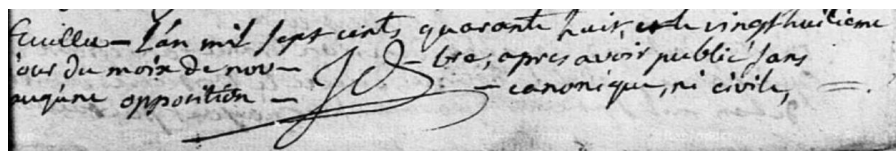 Euillu - L'an mil sept cents quarante huit, et le vingt huitieme
jour du mois de nov - bre, apres avoir publié sans
auqune opposition - canonique, ni civile,